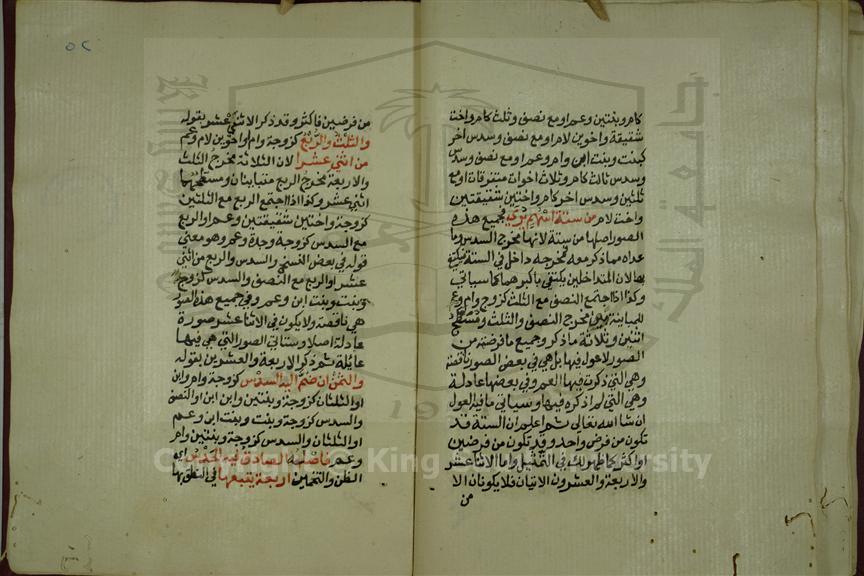 كام وبنتين وعم او مع نصف وثلث كام واخت
شقيقة واخوين لام او مع نصف وسدس اخر
كبنت وبنت ابن وام وعم او مع نصف وسدس
وسدس ثالث كام وثلاث اخوات متفرقات او مع
ثلثين وسدس اخر كام واختين شقيقتين
واخت لام من ستة اسهم يرى فجميع هذه
الصور اصلها من ستة لانها مخرج السدس وما
عداه مما ذكر معه فمخرجه داخل في الستة فيكتفى
بها لان المتداخلين يكتفى باكبرهما كما سياتي
وكذا اذا اجتمع النصف مع الثلث كزوج وام وعم
للمباينة بين مخرج النصف والثلث ومسطح
اثنين وثلاثة ما ذكر وجميع ما فرضته من
الصور لا عول فيها بل هي في بعض الصور ناقصة
وهي التي ذكرت فيها العم وفي بعضها عادلة
وهي التي لم اذكره فيها وسياتي ما فيه العول
ان شا الله تعالى ثم اعلم ان الستة قد
تكون من فرض واحد وقد تكون من فرضين
او اكثر كما ظهر لك في التمثيل واما الاثنا عشر
والاربعة والعشرون الاتيان فلا يكونان الا
من
٥٢
من فرضين فاكثر وقد ذكر الاثني عشر بقوله
والثلث والربع كزوجة وام واخوين لام وعم
من اثني عشرا لان الثلاثة مخرج الثلث
والاربعة مخرج الربع متباينان ومسطحهما
اثني عشر وكذا اذا اجتمع الربع مع الثلثين
كزوجة واختين شقيقتين وعم او الربع
مع السدس كزوجة وجدة وعم وهو معنى
قوله في بعض النسخ والسدس والربع من اثني
عشر او الربع مع النصف والسدس كزوج
وبنت وبنت ابن وعم وفي جميع هذه الصور
هي ناقصة ولا يكون في الاثنا عشر صورة
عادلة اصلا وستاتي الصور التي هي فيها
عايلة ثم ذكر الاربعة والعشرين بقوله
والثمن ان ضم اليه السدس كزوجة وام وابن
او الثلثان كزوجة وبنتين وابن ابن او النصف
والسدس كزوجة وبنت وبنت ابن وعم
او الثلثان والسدس كزوجة وبنتين وام
وعم فاصله الصادق فيه الحدس اي
الظن والتخمين اربعة يتبعها في النطق بها